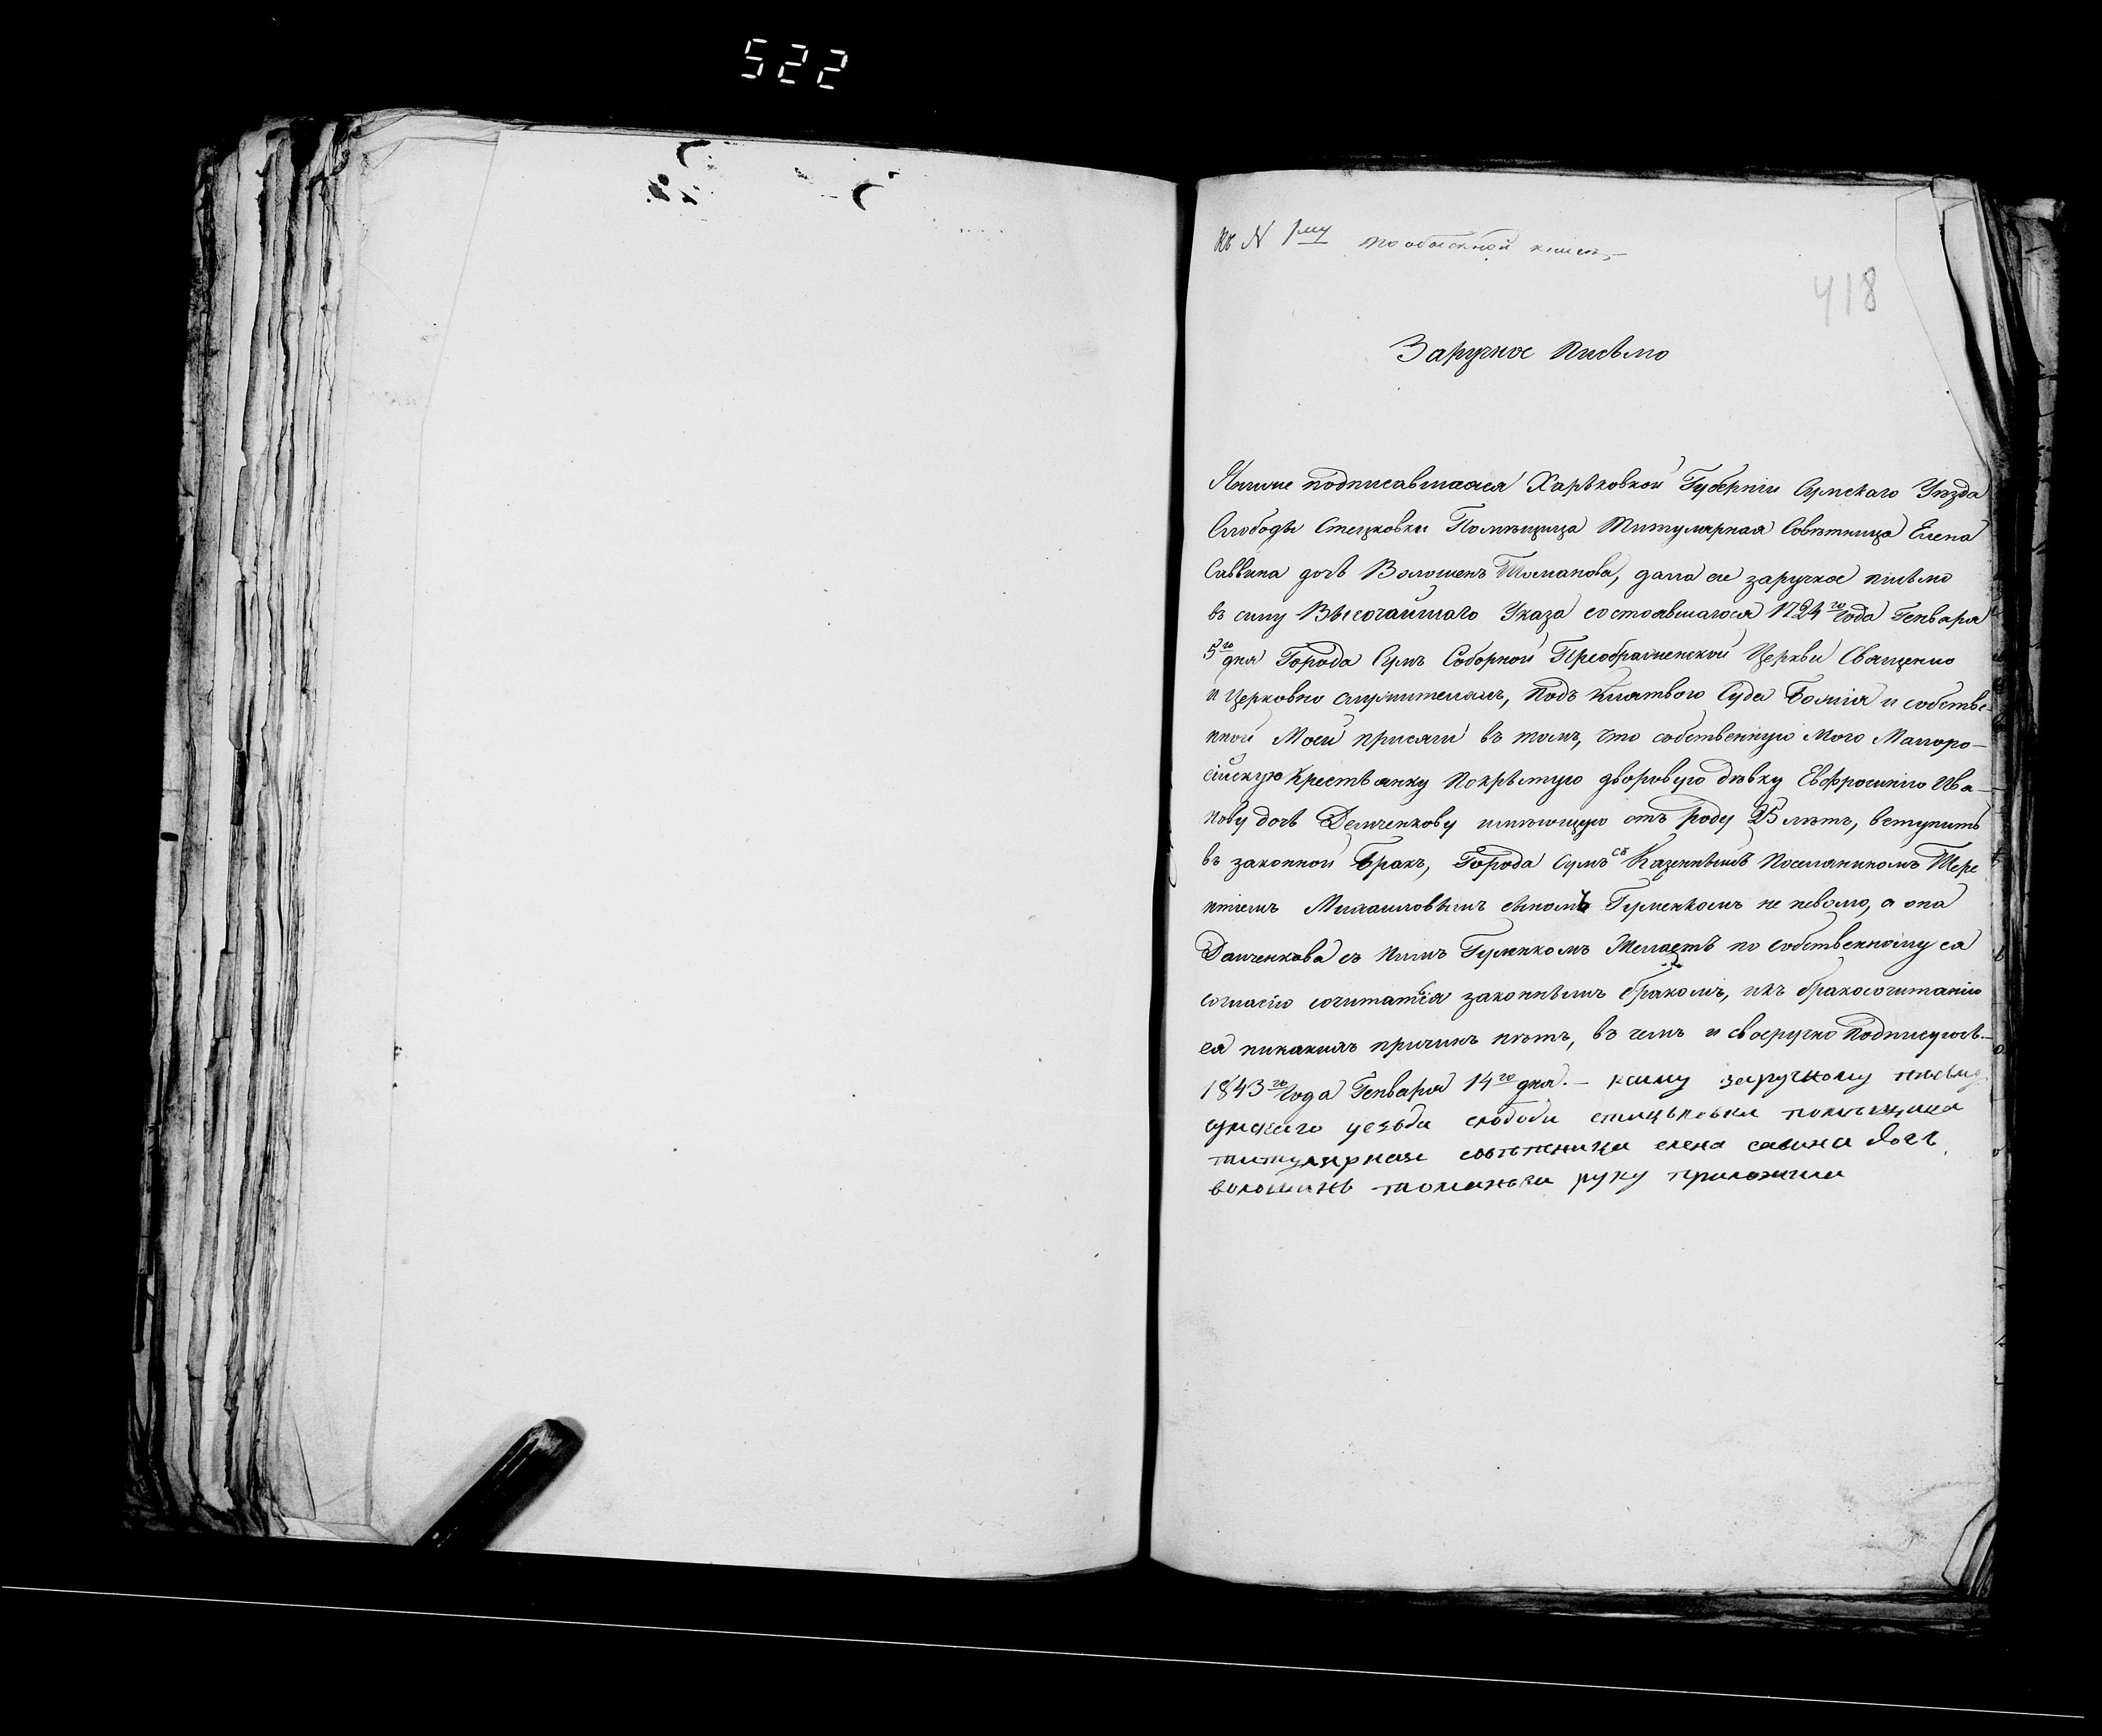 522
Къ № 1му по обыскной книгѣ,—
418
Заручное Письмо
Я ниже подписавшаяся Харьковкой Губерніи Сумскаго Уѣзда
Слободы Стецковки Помѣщица Титулярная Совѣтница Елена
Саввина дочь Волошенъ Томанова, дала сіе заручное письмо
въ силу Высочайшаго Указа состоявшагося 1724го Года Генваря
5го дня Города Сумъ Соборной Преображенской Церкви Священно
и Церковно служителямъ, подъ Клятвою Суда Божія и собстве-
нной Моей присяги въ томъ, что собственную мою Малоро-
сійскую Крестьянку покрытую дворовую дѣвку Евфросинію Ива-
нову дочь Демченкову имѣющую отъ роду 25 лѣтъ, вступить
въ законной Бракъ, Города Сумъ съ Казеннымъ Поселяниномъ Тере
нтіемъ Михаиловымъ сыномъ Гуменкомъ не неволю, а она
Дамченкова съ нимъ Гуменкомъ Желаетъ по собственному ея
согласію сочитаться законнымъ бракомъ, икъ бракосочитанію
ея никакихъ причинъ нѣтъ, въ чемъ и своеручно Подписуюсь.—
1843го Года Генваря 14го дня.— ксиму заручному писму
сумскаго уезда слободи стицьковки помѣщица
титулярная совѣтеница елена савина дочь
волошинь томанова руку приложила